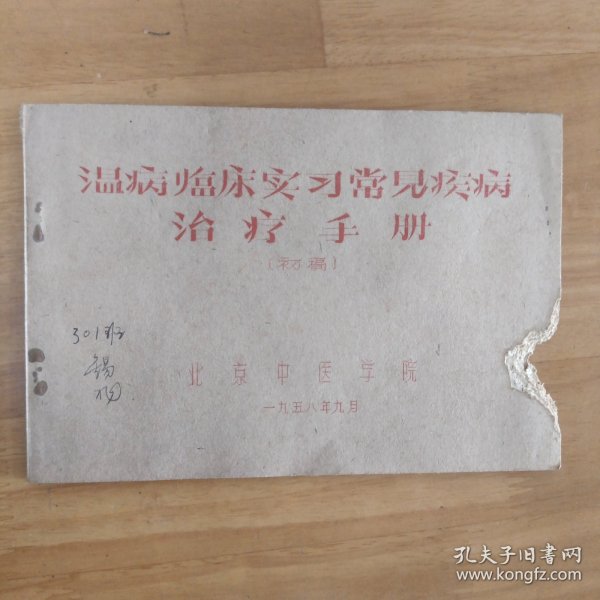 温病临床实习常见疾病
治疗手册
(初稿)
301班
北京中医学院
一九五八年九月
孔夫子旧书网
www.kongfz.com